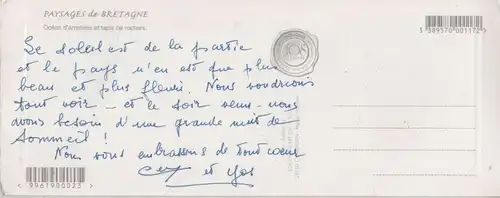 PAYSAGES de BRETAGNE
Le soleil est de la partie
et le pays n'en est que plus
beau et plus fleuri. Nous voudrions
tout voir - et le soir venu - nous
avons besoin d'une grande nuit de
sommeil !
Nous vous embrassons de tout coeur
et
9961900023
3 389570 001172